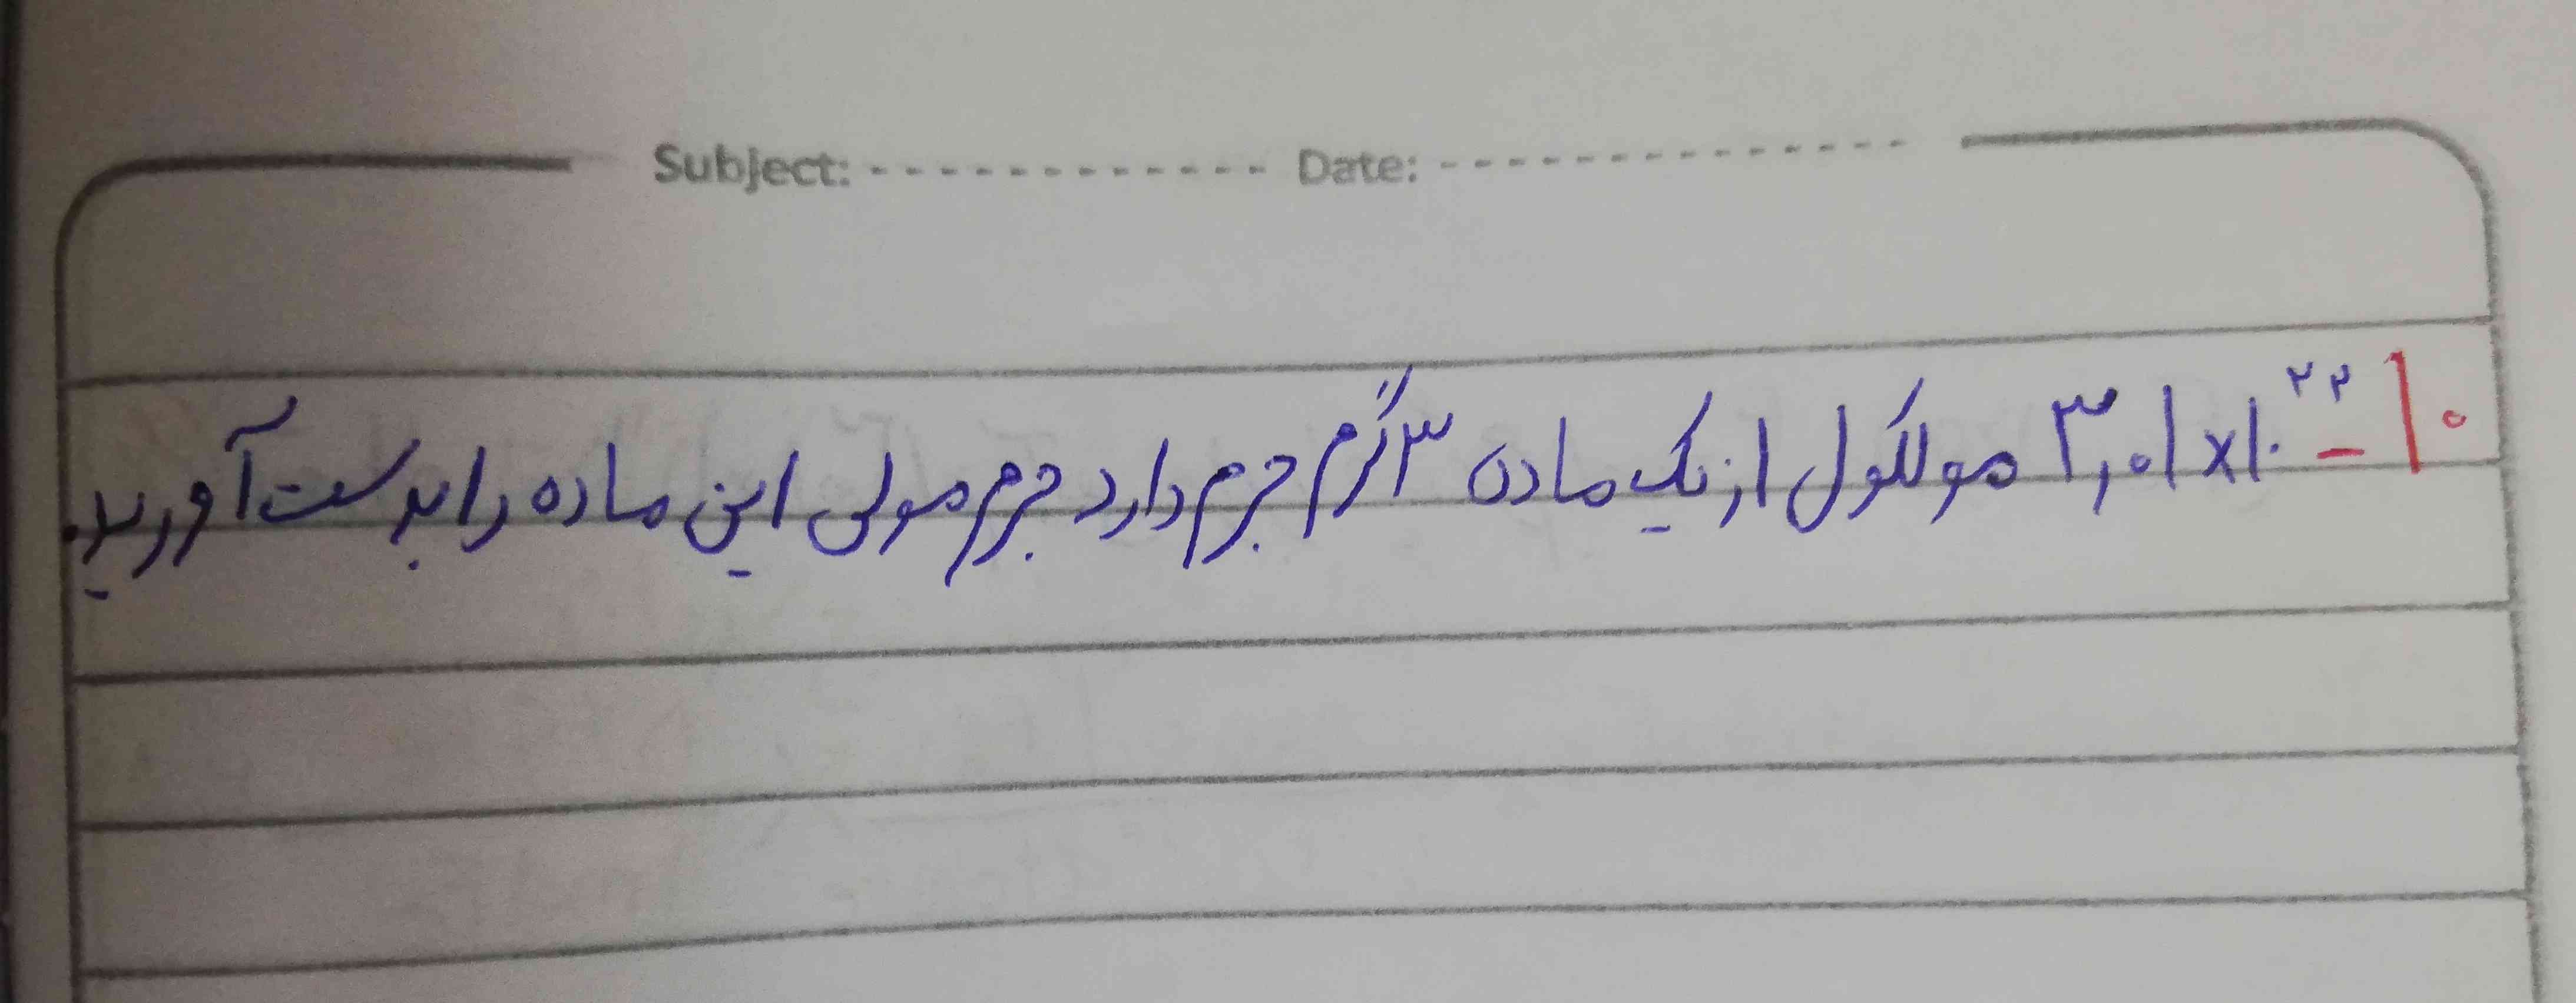 Subject: Date:
۱۰- ۳٫۰۱×۱۰^۲۲ مولکول از یک ماده ۳ گرم جرم دارد جرم مولی این ماده را بدست آورید.